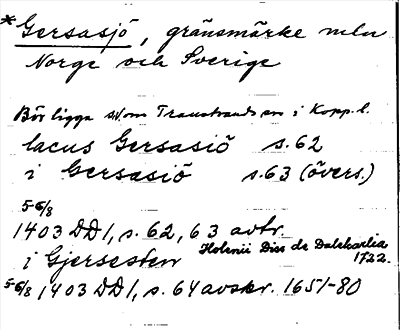 *Gersasjö, gränsmärke mln
Norge och Sverige
Bör ligga sv.om Transtrands sn i Kopp. l.
lacus Gersasiö s. 62
i Gersasiö s. 63 (övers.)
5-6/8
1403 DD1, s. 62, 63 avtr.
i Gjersesten Holenii Diss de Dalekarlia
1722.
5-6/8 1403 DD1, s. 64 avskr. 1651-80